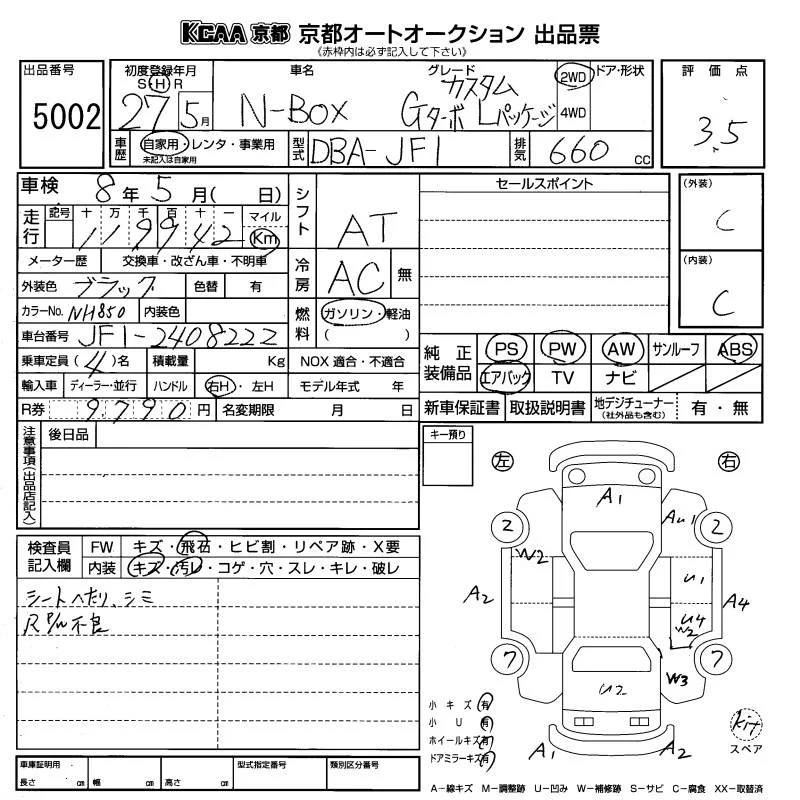 KCAA 京都 京都オートオークション 出品票
《赤枠内は必ず記入して下さい》
出品番号
5002
初度登録年月
S・H・R
27 5月
車名
N-BOX
グレード
カスタム
GターボLパッケージ
2WD
4WD
ドア・形状
評価点
3.5
車歴
自家用・レンタ・事業用
未記入は自家用
型式
DBA-JF1
排気
660 cc
車検 8年 5月( 日)
走行
記号 十 万 千 百 十 一 マイル
119942 Km
メーター歴 交換車・改ざん車・不明車
外装色 ブラック 色替 有
カラーNo. NH850 内装色
車台番号 JF1-2408222
乗車定員 (4)名 積載量 Kg
輸入車 ディーラー・並行 ハンドル 右H・左H
R券 9790 円 名変期限 月 日
シフト
AT
冷房
AC 無
燃料
ガソリン・軽油
( )
NOX 適合・不適合
モデル年式 年
セールスポイント
(外装)
C
(内装)
C
純正装備品
PS PW AW サンルーフ ABS
エアバック TV ナビ
新車保証書 取扱説明書 地デジチューナー
(社外品も含む)
有・無
注意事項(出品店記入)
後日品
キー預り
検査員記入欄
FW キズ・飛石・ヒビ割・リペア跡・X要
内装 キズ・汚レ・コゲ・穴・スレ・キレ・破レ
シートヘたり、シミ
R P/W 不良
左
右
A1
AU1
2
2
W2
U1
A2
A4
U4
W2
7
7
W3
U2
A1
A2
小キズ 有
小U 有
ホイールキズ 有
ドアミラーキズ 有
kit
スペア
A−線キズ M−調整跡 U−凹み W−補修跡 S−サビ C−腐食 XX−取替済
車庫証明用
長さ cm 幅 cm 高さ cm
型式指定番号
類別区分番号